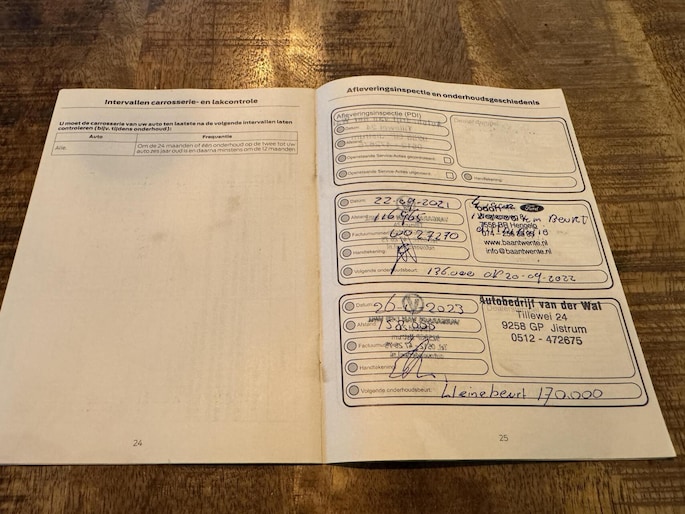 Intervallen carrosserie- en lakcontrole
U moet de carrosserie van uw auto ten laatste na de volgende intervallen laten
controleren (bijv. tijdens onderhoud):
Auto Frequentie
Alle Om de 24 maanden of één onderhoud op de twee tot uw
auto zes jaar oud is en daarna minstens om de 12 maanden
24
Afleveringsinspectie en onderhoudsgeschiedenis
Afleveringsinspectie (PDI)
Datum
Afstand
Openstaande Service-Acties gecontroleerd
Openstaande Service-Acties uitgevoerd
Handtekening
Datum: 22-09-2021
Afstand
Factuurnummer
Handtekening
Volgende onderhoudsbeurt: 136.000 of 20-09-2022
Ford
Beurt
Hengelo
www.baantwente.nl
info@baantwente.nl
Datum 2023
Afstand
Factuurnummer
Handtekening
Volgende onderhoudsbeurt: kleine beurt 170.000
Autobedrijf van der Wal
Tillewei 24
9258 GP Jistrum
0512 - 472675
25